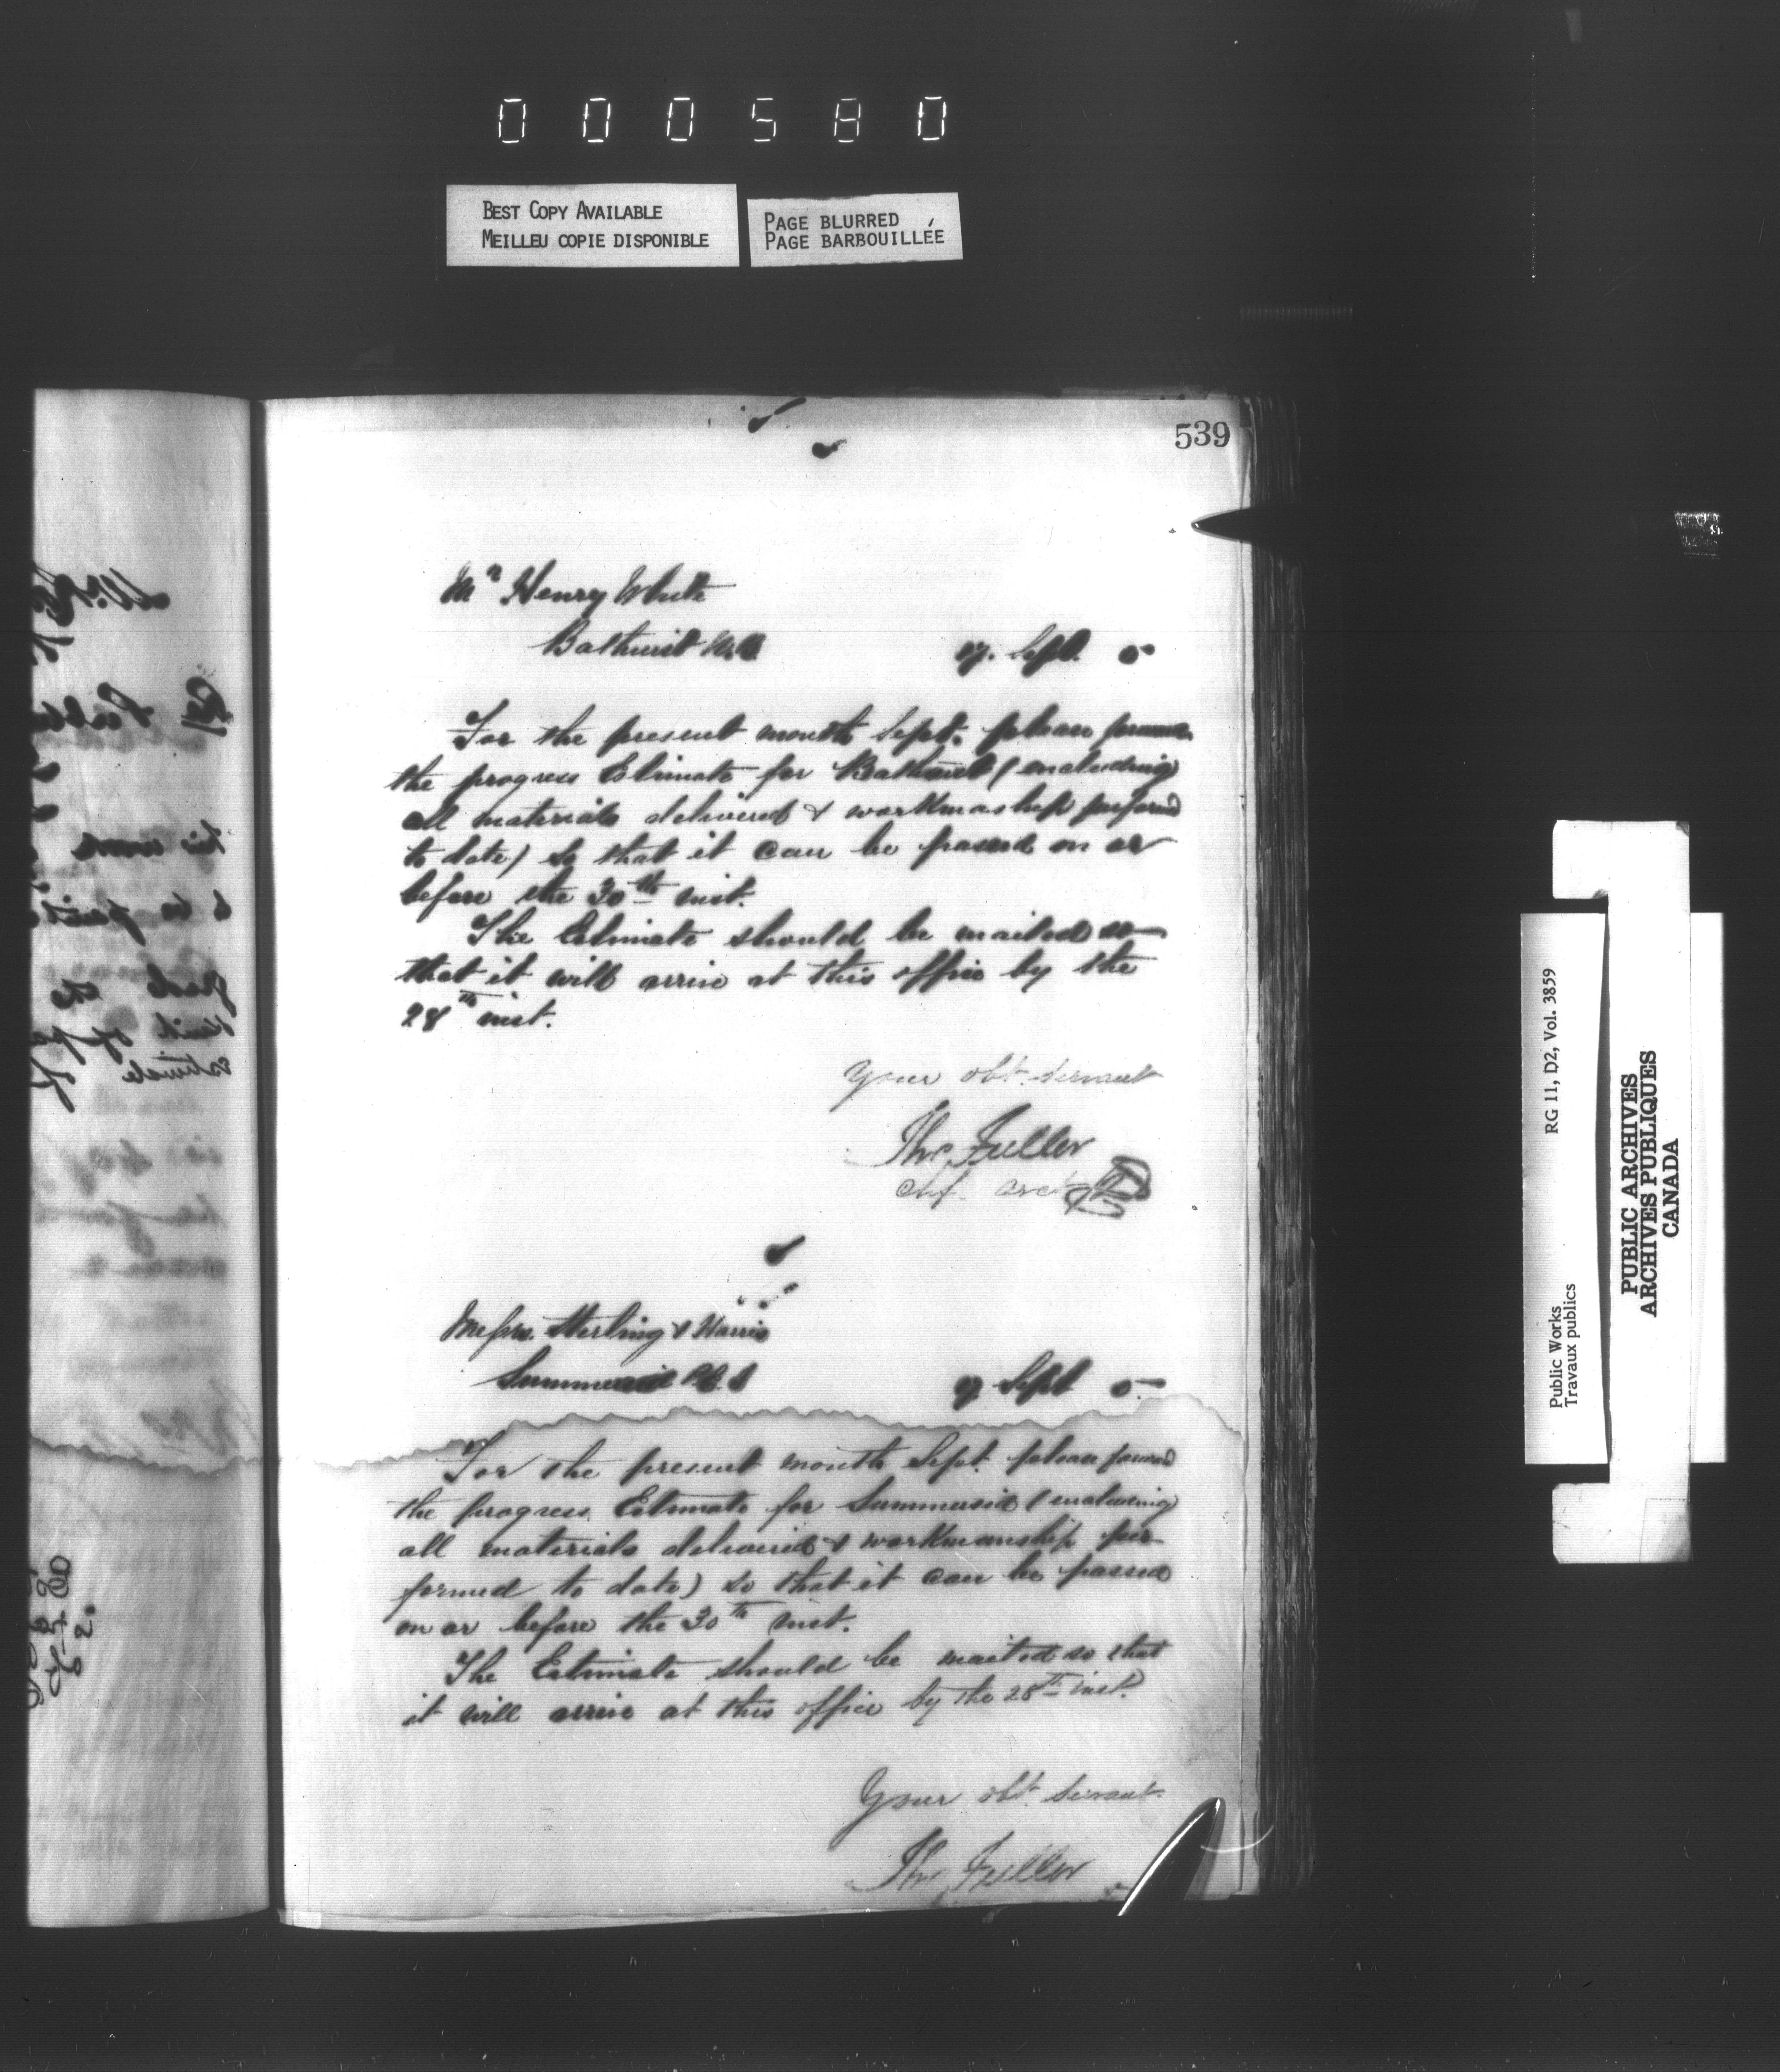 000580
BEST COPY AVAILABLE
MEILLEU COPIE DISPONIBLE
PAGE BLURRED
PAGE BARBOUILLÉE
539
Mr Henry White
Bathurst N.B.
Sept. 5
For the present month Sept. please forward
the progress Estimate for Bathurst (including
all materials delivered & workmaship performd
to date) so that it can be passed on or
before the 30th inst.
The Estimate should be mailed so
that it will arrive at this office by the
28th inst.
Your obt. servant
Thos Fuller
Chf. Arct
Messrs. Sterling & Harris
Summerside P.E.I
Sept 5
For the present month Sept. please forward
the progress Estimate for Summerside (including
all materials delivered & workmanship per-
formed to date) so that it can be passed
on or before the 30th inst.
The Estimate should be mailed so that
it will arrive at this office by the 28th inst.
Your obt. servant.
Thos Fuller
Public Works
Travaux publics
RG 11, D2, Vol. 3859
PUBLIC ARCHIVES
ARCHIVES PUBLIQUES
CANADA